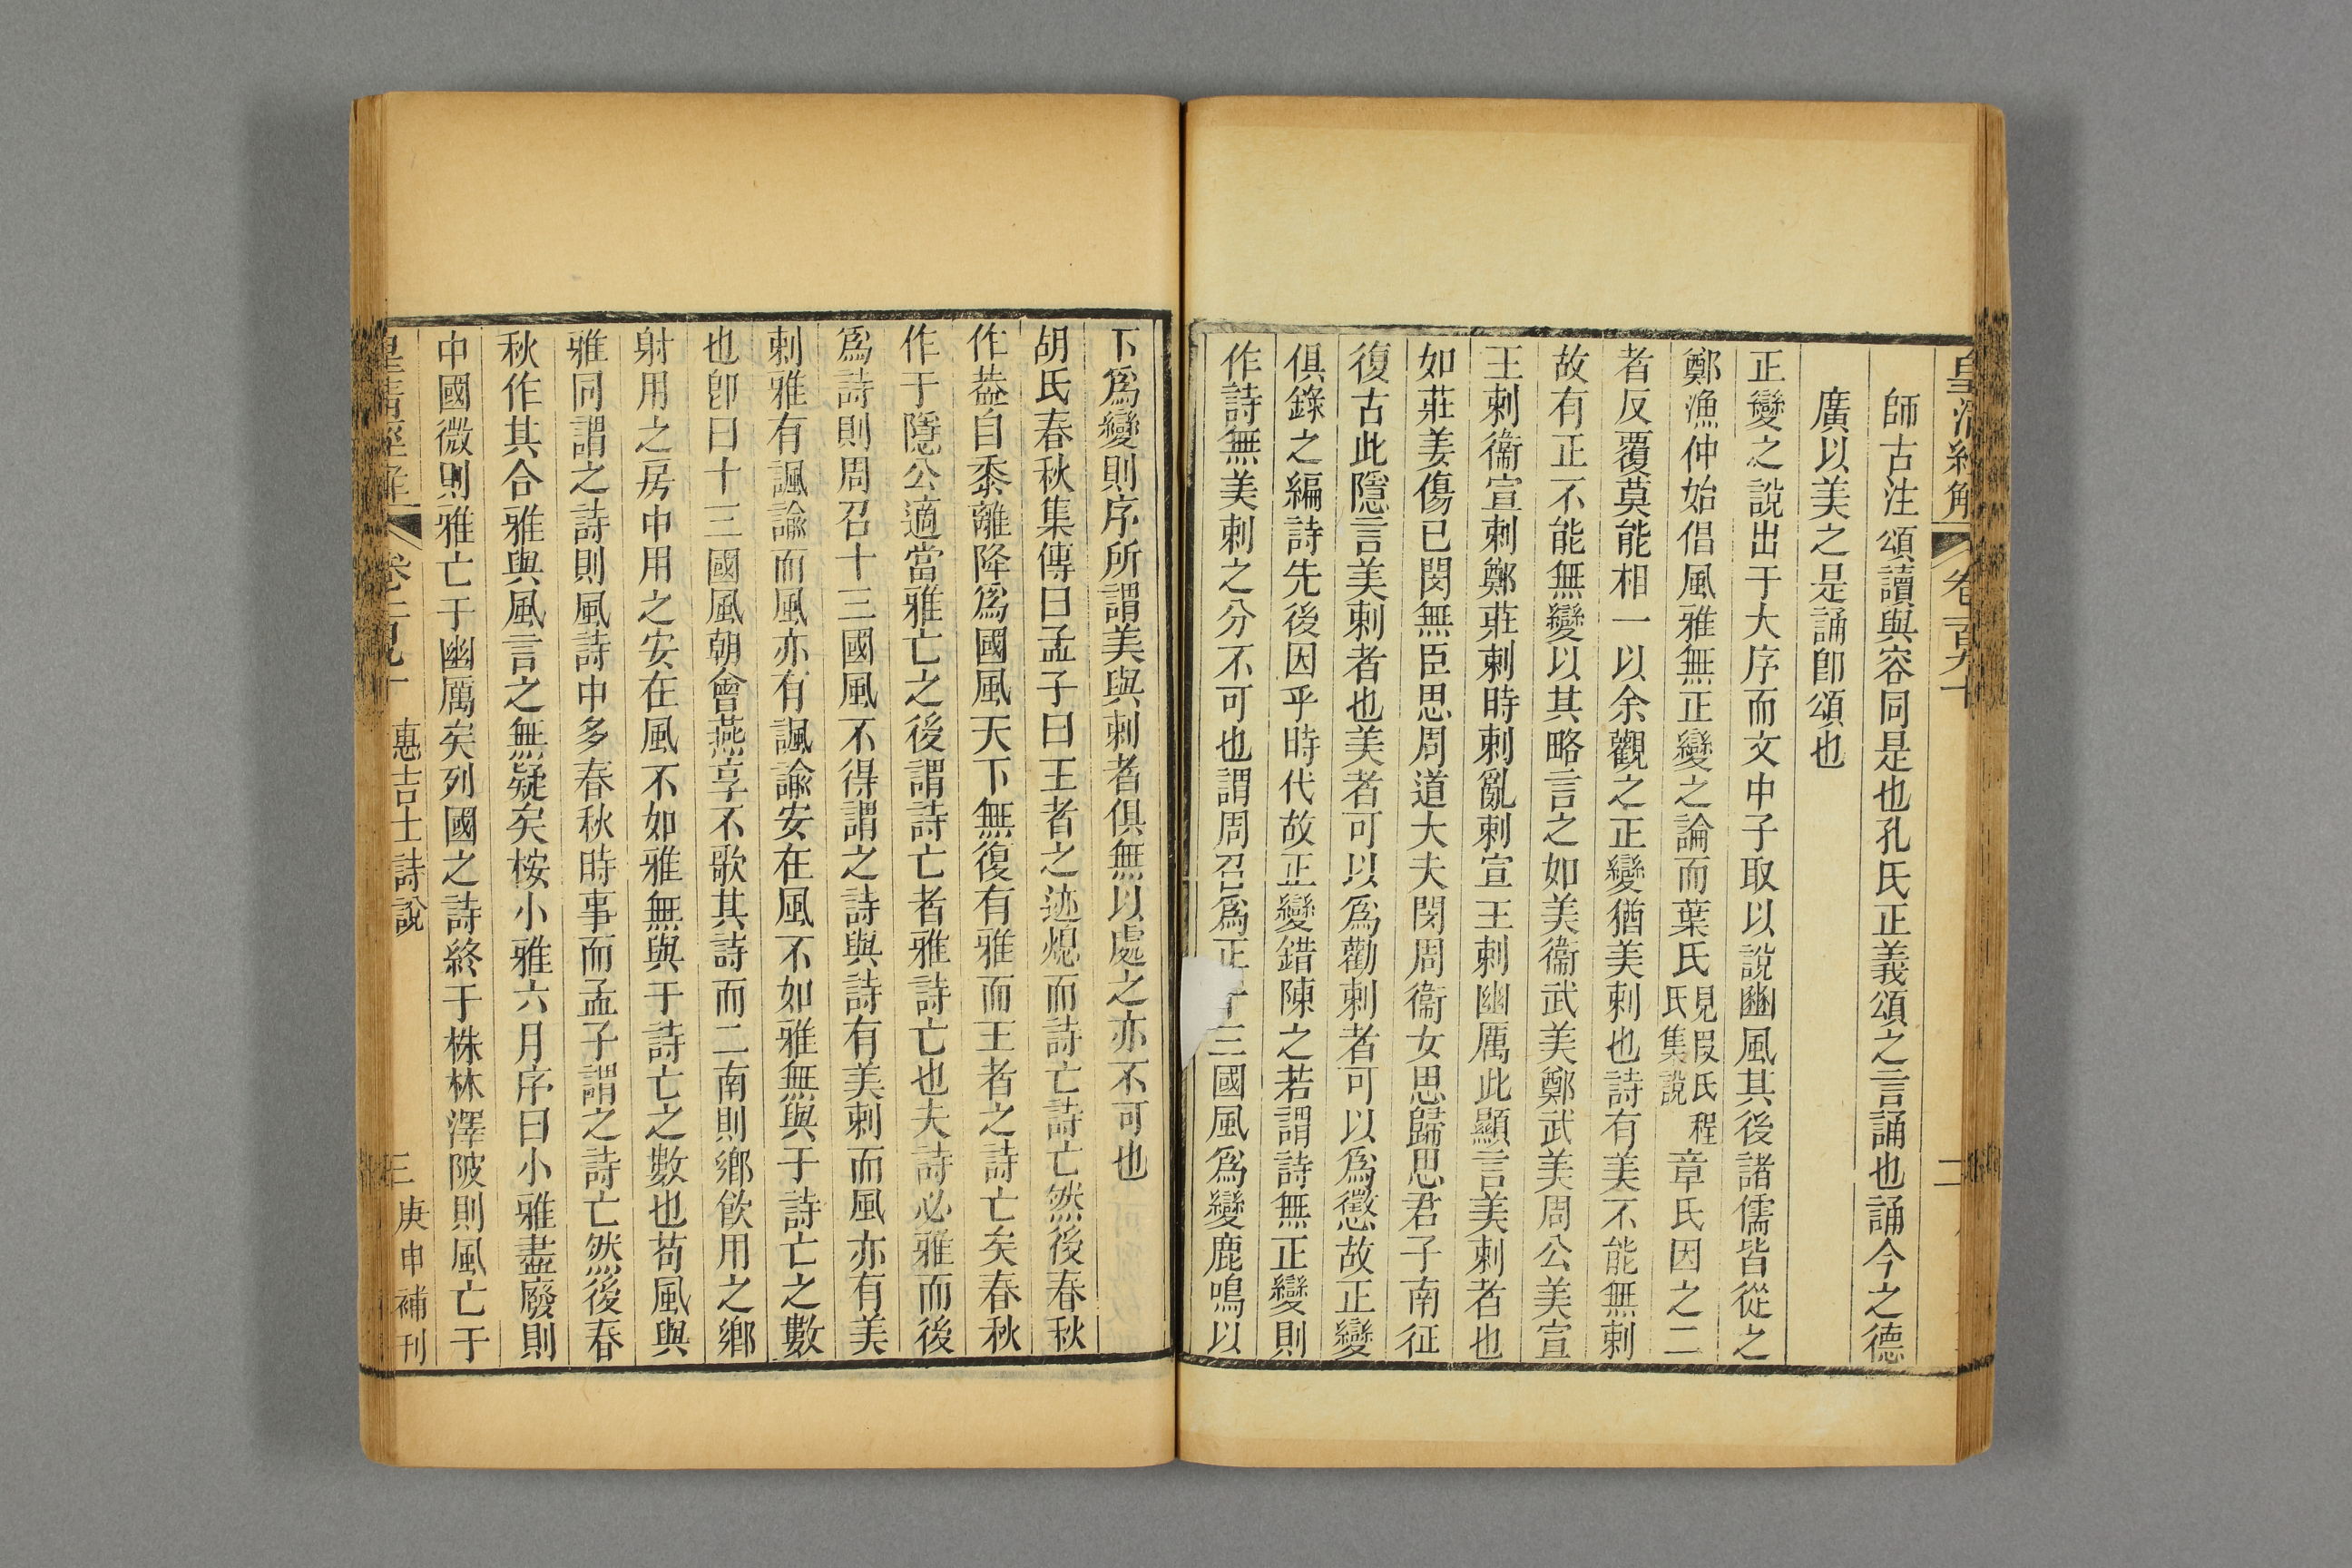 皇清經解 卷一百九十 二
師古注頌讀與容同是也孔氏正義頌之言誦也誦今之德
廣以美之是誦卽頌也
正變之說出于大序而文中子取以說豳風其後諸儒皆從之
鄭漁仲始倡風雅無正變之論而葉氏見叚氏程氏集說章氏因之二
者反覆莫能相一以余觀之正變猶美刺也詩有美不能無刺
故有正不能無變以其略言之如美衞武美鄭武美周公美宣
王刺衞宣刺鄭莊刺時刺亂刺宣王刺幽厲此顯言美刺者也
如莊姜傷已閔無臣思周道大夫閔周衞女思歸思君子南征
復古此隱言美刺者也美者可以爲勸刺者可以爲懲故正變
俱錄之編詩先後因乎時代故正變錯陳之若謂詩無正變則
作詩無美刺之分不可也謂周召爲正十三國風爲變鹿鳴以
下爲變則序所謂美與刺者俱無以處之亦不可也
胡氏春秋集傳曰孟子曰王者之迹熄而詩亡詩亡然後春秋
作葢自黍離降爲國風天下無復有雅而王者之詩亡矣春秋
作于隱公適當雅亡之後謂詩亡者雅詩亡也夫詩必雅而後
爲詩則周召十三國風不得謂之詩與詩有美刺而風亦有美
刺雅有諷諭而風亦有諷諭安在風不如雅無與于詩亡之數
也卽曰十三國風朝會燕享不歌其詩而二南則鄉飮用之鄉
射用之房中用之安在風不如雅無與于詩亡之數也苟風與
雅同謂之詩則風詩中多春秋時事而孟子謂之詩亡然後春
秋作其合雅與風言之無疑矣桉小雅六月序曰小雅盡廢則
中國微則雅亡于幽厲矣列國之詩終于株林澤陂則風亡于
皇清經解 卷一百九十 惠吉士詩說 三 庚申補刊